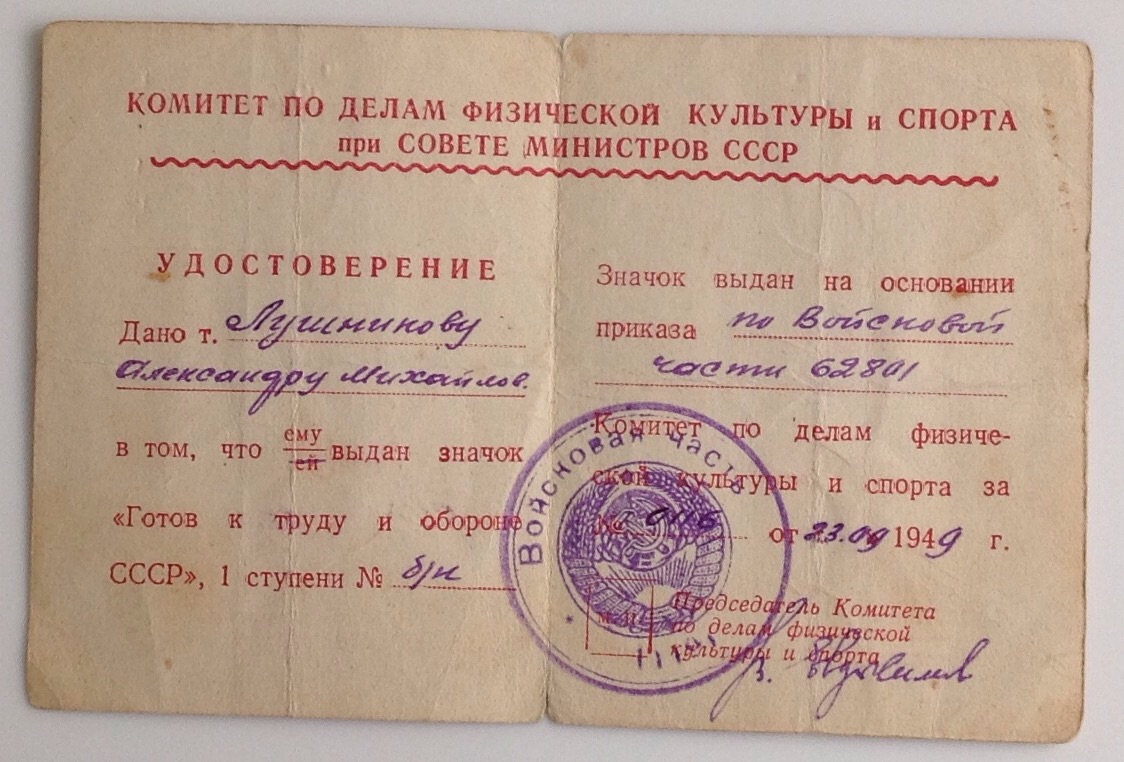 КОМИТЕТ ПО ДЕЛАМ ФИЗИЧЕСКОЙ КУЛЬТУРЫ и СПОРТА
при СОВЕТЕ МИНИСТРОВ СССР
УДОСТОВЕРЕНИЕ
Дано т. Лушникову
Александру Михайлов.
в том, что ему
ей выдан значок
«Готов к труду и обороне
СССР», 1 ступени № б/н
Значок выдан на основании
приказа по Войсковой
части 62801
Комитет по делам физиче-
ской культуры и спорта за
№ от 23.09 1949 г.
М. П.
Председатель Комитета
по делам физической
культуры и спорта
Войсковая часть